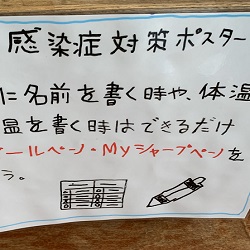 感染症対策ポスター
に名前を書く時や、体温
温を書く時はできるだけ
ールペン・Myシャープペンを
う。